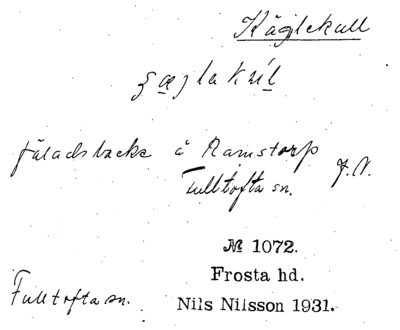 Käglekull
fäladsbacke å Ramstorp
Fulltofta sn.
№ 1072.
Frosta hd.
Fulltofta sn.
Nils Nilsson 1931.